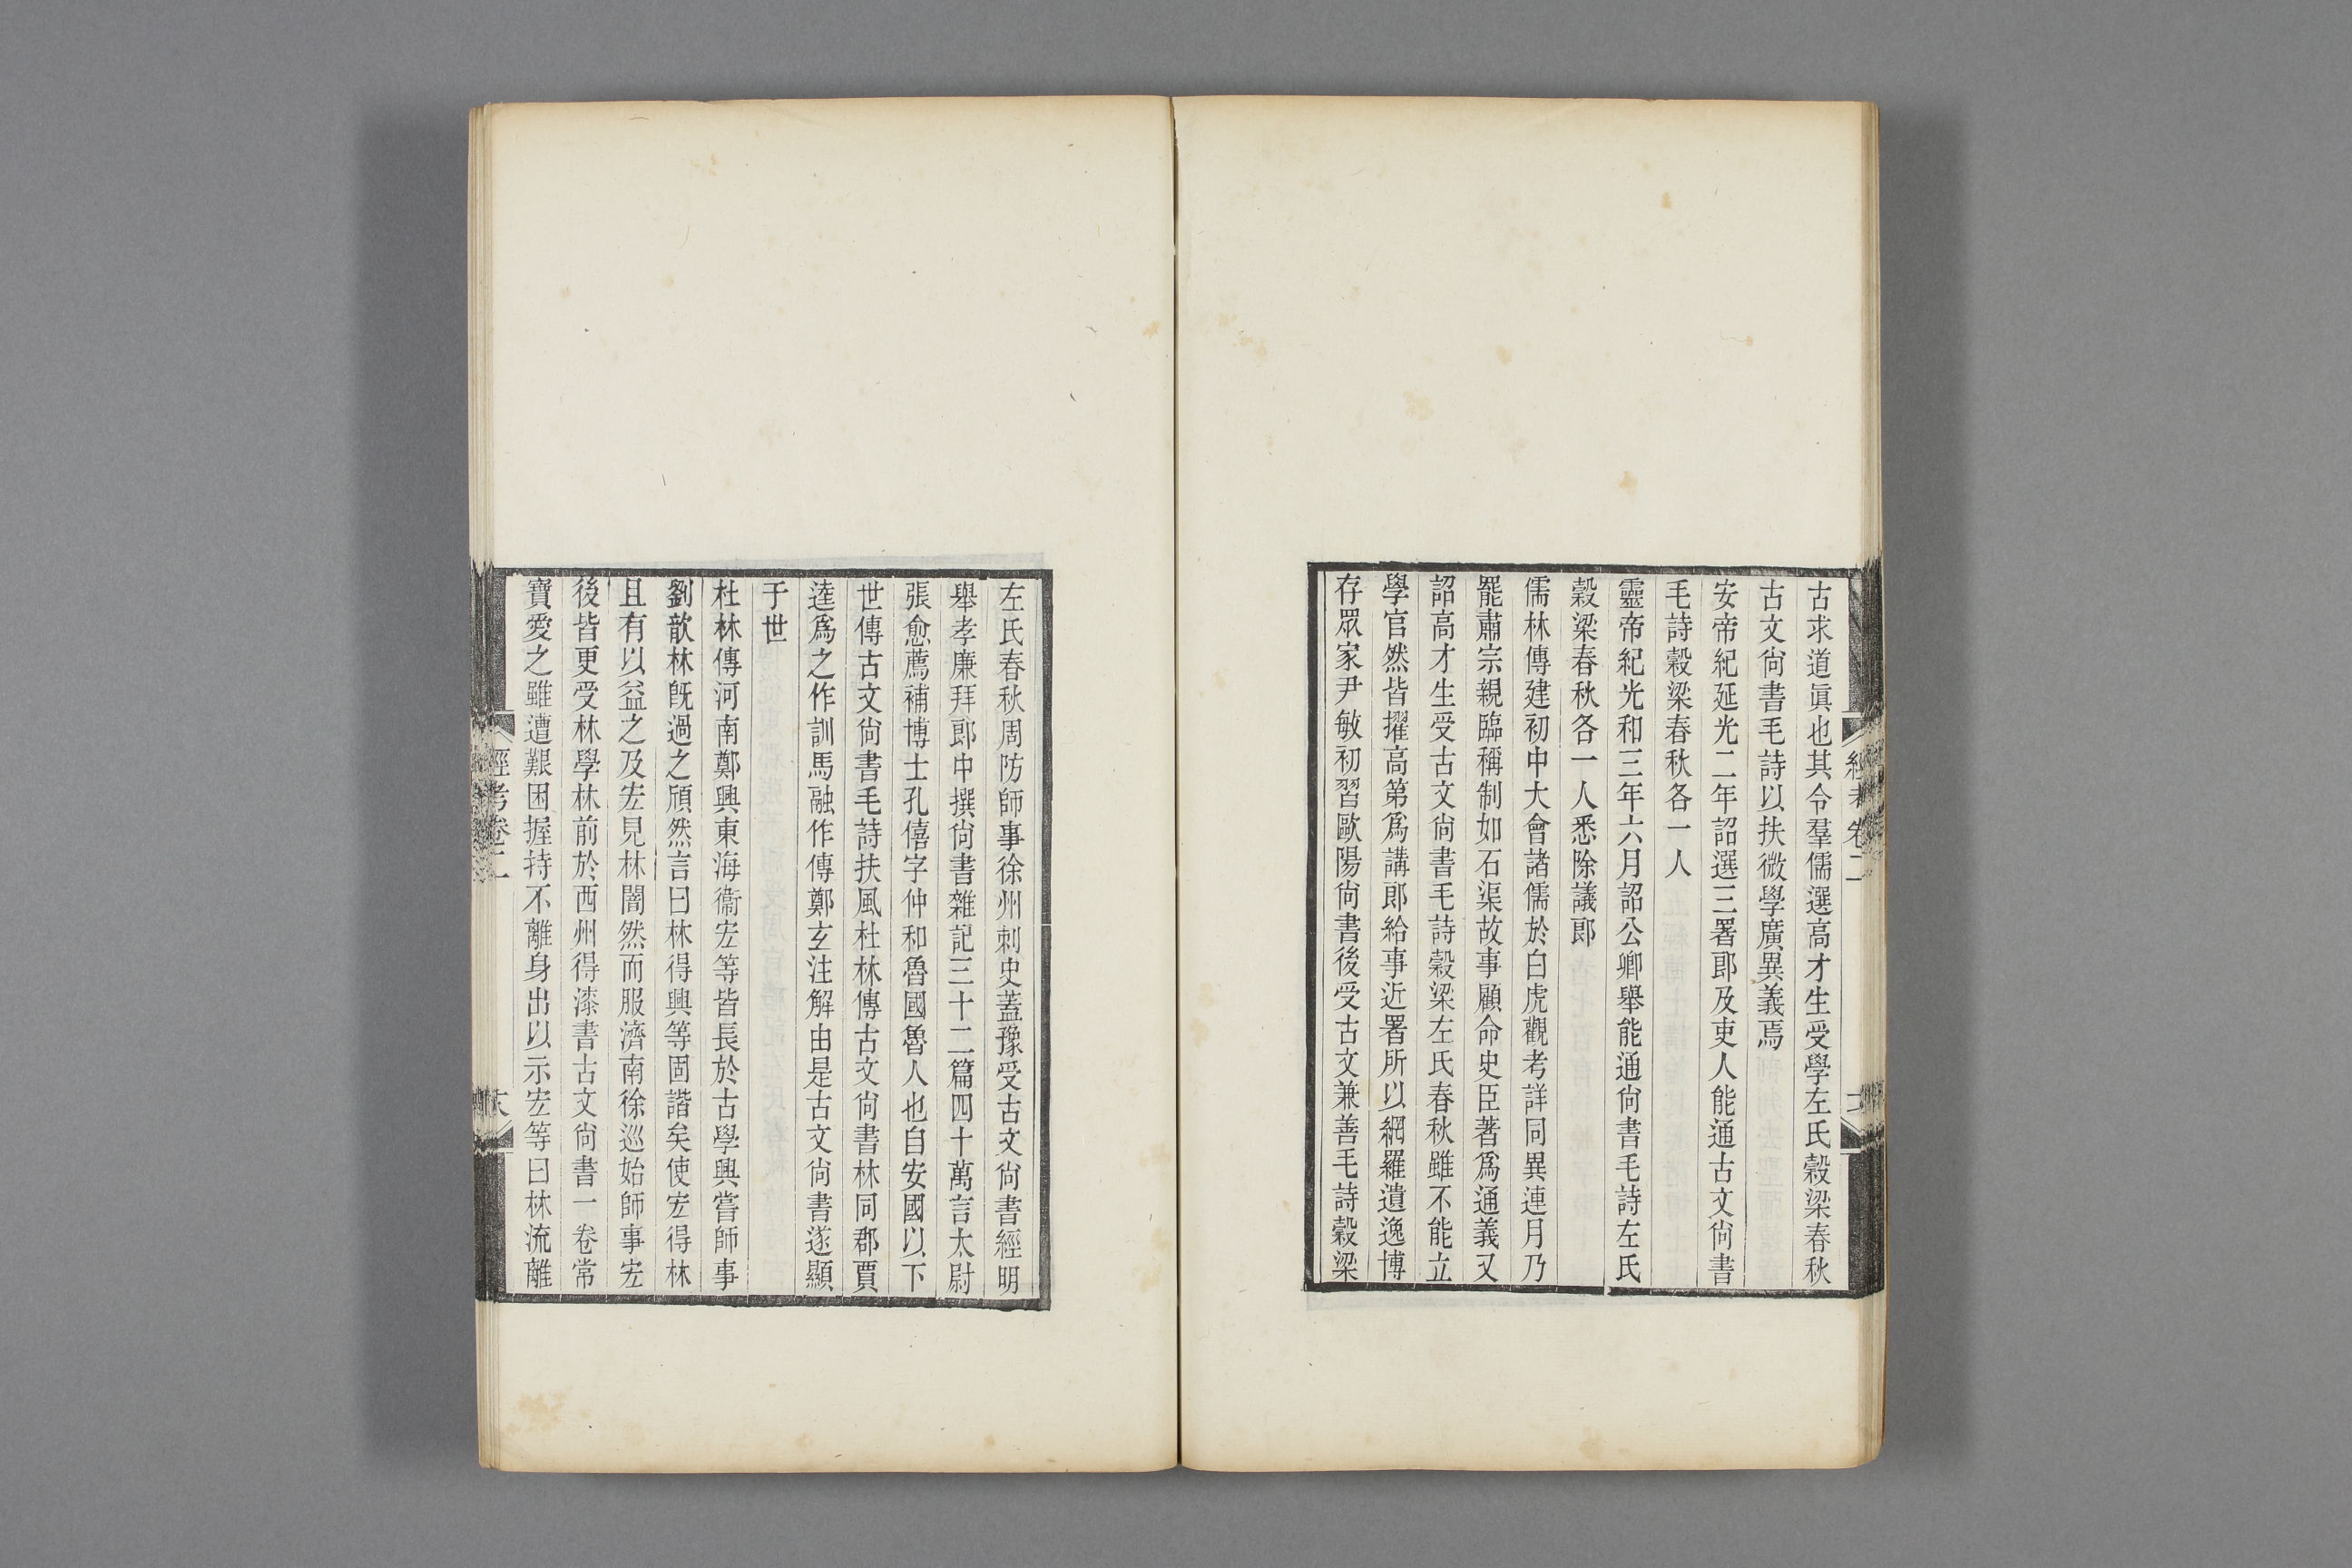 古求道眞也其令羣儒選高才生受學左氏穀梁春秋
古文尙書毛詩以扶微學廣異義焉
安帝紀延光二年詔選三署郎及吏人能通古文尙書
毛詩穀梁春秋各一人
靈帝紀光和三年六月詔公卿舉能通尙書毛詩左氏
穀梁春秋各一人悉除議郎
儒林傳建初中大會諸儒於白虎觀考詳同異連月乃
罷肅宗親臨稱制如石渠故事顧命史臣著爲通義又
詔高才生受古文尙書毛詩穀梁左氏春秋雖不能立
學官然皆擢高第爲講郎給事近署所以網羅遺逸博
存眾家尹敏初習歐陽尙書後受古文兼善毛詩穀梁
左氏春秋周防師事徐州刺史蓋豫受古文尙書經明
舉孝廉拜郎中撰尙書雜記三十二篇四十萬言太尉
張愈薦補博士孔僖字仲和魯國魯人也自安國以下
世傳古文尙書毛詩扶風杜林傳古文尙書林同郡賈
逵爲之作訓馬融作傳鄭玄注解由是古文尙書遂顯
于世
杜林傳河南鄭興東海衞宏等皆長於古學興嘗師事
劉歆林旣過之頎然言曰林得興等固諧矣使宏得林
且有以益之及宏見林闇然而服濟南徐巡始師事宏
後皆更受林學林前於西州得漆書古文尙書一卷常
寶愛之雖遭艱困握持不離身出以示宏等曰林流離
經考卷二